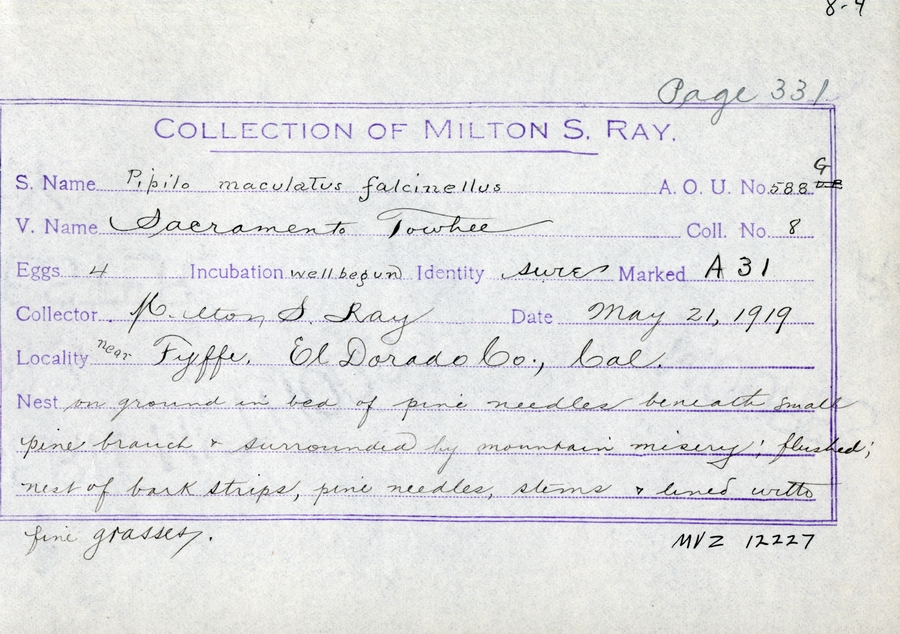 8-4
Page 331
COLLECTION OF MILTON S. RAY.
S. Name Pipilo maculatus falcinellus A. O. U. No. 588 G
V. Name Sacramento Towhee Coll. No. 8
Eggs 4 Incubation well begun Identity sure Marked A 31
Collector Milton S. Ray Date May 21, 1919
Locality near Fyffe, El Dorado Co., Cal.
Nest on ground in bed of pine needles beneath small
pine branch & surrounded by mountain misery; flushed;
nest of bark strips, pine needles, stems & lined with
fine grasses.
MVZ 12227